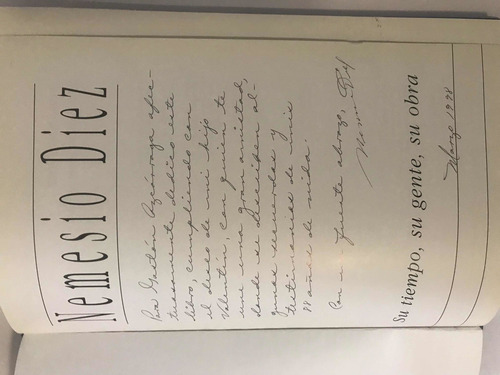 Nemesio Diez
Para Gastón Azcárraga afec-
tuosamente dedico este
libro, cumpliendo con
el deseo de mi hijo
Valentín, con quien te
une una gran amistad,
donde se describen al-
gunos recuerdos y
testimonios de mis
88 años de vida.
Con un fuerte abrazo,
Su tiempo, su gente, su obra
Marzo 1998